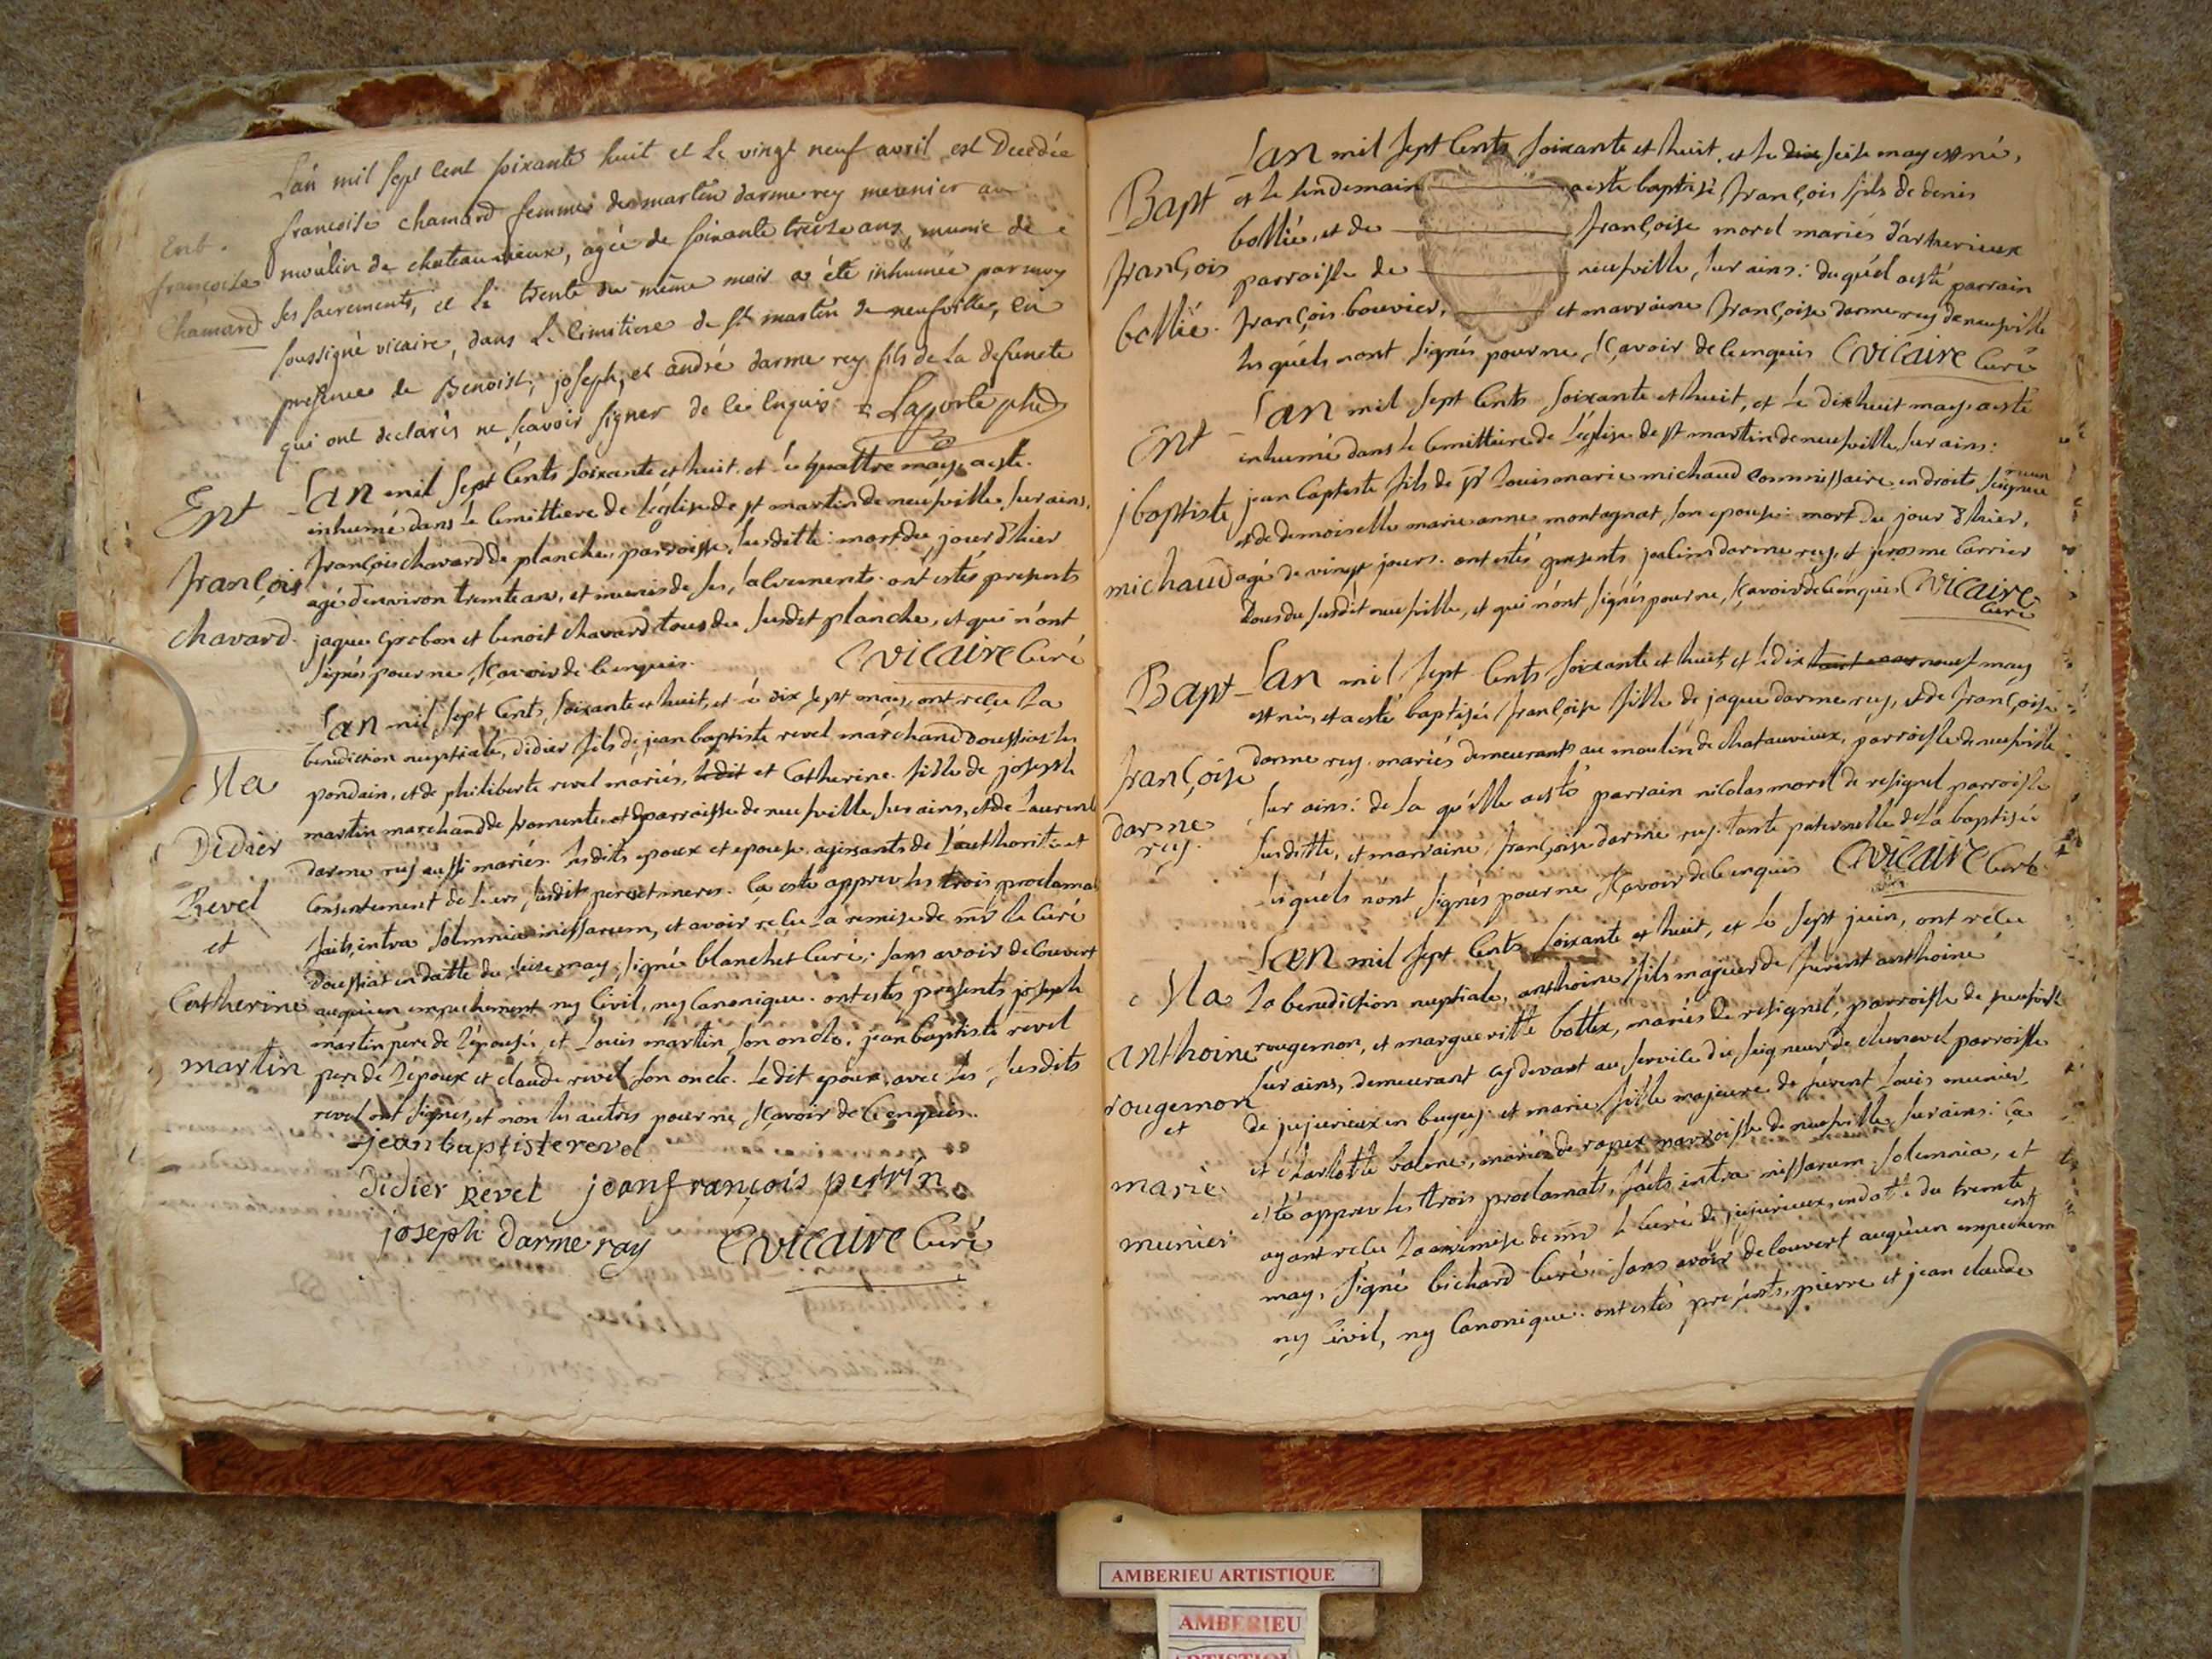 L'an mil sept cent soixante huit et le vingt neuf avril est decedée
Ent. françoise chamard femme de martin darme rey meunier au
françoise moulin de chateauvieux, agée de soixante treize ans, munie de
Chamard ses sacrements, et le trente du même mois a été inhumée par moy
soussigné vicaire, dans le cimitiere de st martin de neufville, en
presence de Benoist, joseph, et andré darme rey fils de la defuncte
qui ont declarés ne sçavoir signer de ce enquis Laporte
Ent Lan mil sept cents soixante et huit et le quattre may, aesté
inhumé dans le cemittiere de l'église de st martin de neufville, sur ains,
françois françois chavard de planche, parroisse, susditte: mort du jour d'hier
agé denviron trente ans, et munis de ses, sacrements. ont estés presents
chavard. jaque grobon et benoit chavard tous du susdit planche, et qui n'ont
signés pour ne sçavoir de ce enquis. Cvicaire Curé
Lan mil, sept cents, soixante et huit, et le dix sept may, ont reçu la
benediction nuptiale, didier fils de jean baptiste revel marchand doussiat les
Ma pondain, et de philiberte revel mariés, ledit et Catherine fille de joseph
martin marchand de fromente et parroisse de neufville, sur ains, et de laurent
Didier darme rey aussi mariés. lesdits epoux et epouse agissants de l'authorité et
Revel Consentement de leurs, susdit peres et meres. Ça esté apprev les trois proclamat
et faits, intra solemnia missarum, et avoir reçu la remise de mr le Curé
doussiat en datte du seize may; signé blanchet Curé, sans avoir decouvert
Catherine auquun empechement ny Civil, ny Canonique. ont estés presents joseph
martin pere de l'epouse et louis martin son oncle. jean baptiste revel
martin pere de l'epoux et claude revel son oncle. le dit epoux, avec les susdits
revel ont signés, et non les autres pour ne, sçavoir de ce enquis.
jean baptiste revel
didier Revel jean françois perrin
joseph Darmeray Cvicaire Curé
Lan mil sept Cents soixante et huit, et le dix seize may est né,
Bapt et le lendemain aesté baptisé, françois fils de denis
bollié, et de françoise morel mariés
françois parroisse de neufville, sur ains: duquél aesté parrain
bollié. françois bouvier, et marraine françoise darme rey de neufville
lesquéls nont signés pour ne, sçavoir de ce enquis Cvicaire Curé
Lan mil sept Cents soixante et huit, et le dix huit may, aesté
Ent inhumé dans le Cemittiere de l'église de st martin de neufville, sur ains:
jbaptiste jean baptiste fils de sr louis marie michaud commissaire en droits seigneu
riaux
et de demoiselle marie anne montagnat, son epouse: mort du jour d'hier,
michaud agé de vingt jours. ont estés presents darme rey, et jerosme Carrier
tous du susdit neufville, et qui n'ont signés pour ne, sçavoir de ce enquis Cvicaire
Curé
Bapt Lan mil sept Cents soixante et huit, et le dix neuf may
est née, et aesté baptisée, françoise fille de jaque darme rey, et de françoise
françoise darme rey. mariés demeurants au moulin de chatauvieux, parroisse de neufville
darme sur ains: de la qu'elle aesté parrain nicolas morel de resignel parroisse
rey. susditte, et marraine, françoise darme rey. tante paternelle de la baptisée
lesquéls n'ont signés pour ne sçavoir de ce enquis Cvicaire Curé
Lan mil sept Cents soixante et huit, et le sept juin, ont reçu
Ma la benediction nuptiale, anthoine fils majeur de furent anthoine
anthoine rougemon, et margueritte bottex, mariés de resignel, parroisse de neufville
rougemon sur ains, demeurant cy devant au service du seigneur de chenavel parroisse
et de jujurieux en bugey. et marie fille majeure de furent louis munier
et charlotte balme, mariés de ropex parroisse de neufville sur ains: ça
marie esté apprev les trois proclamats, faits intra missarum solemnia, et
ayant reçu la remise de mr le Curé de jujurieux, en datte du trente
munier may, signé bichard Curé: sans avoir decouvert auquun empechem
ent
ny Civil, ny Canonique. ont estés presents, pierre et jean claude
AMBERIEU ARTISTIQUE
AMBERIEU
ARTISTIQUE